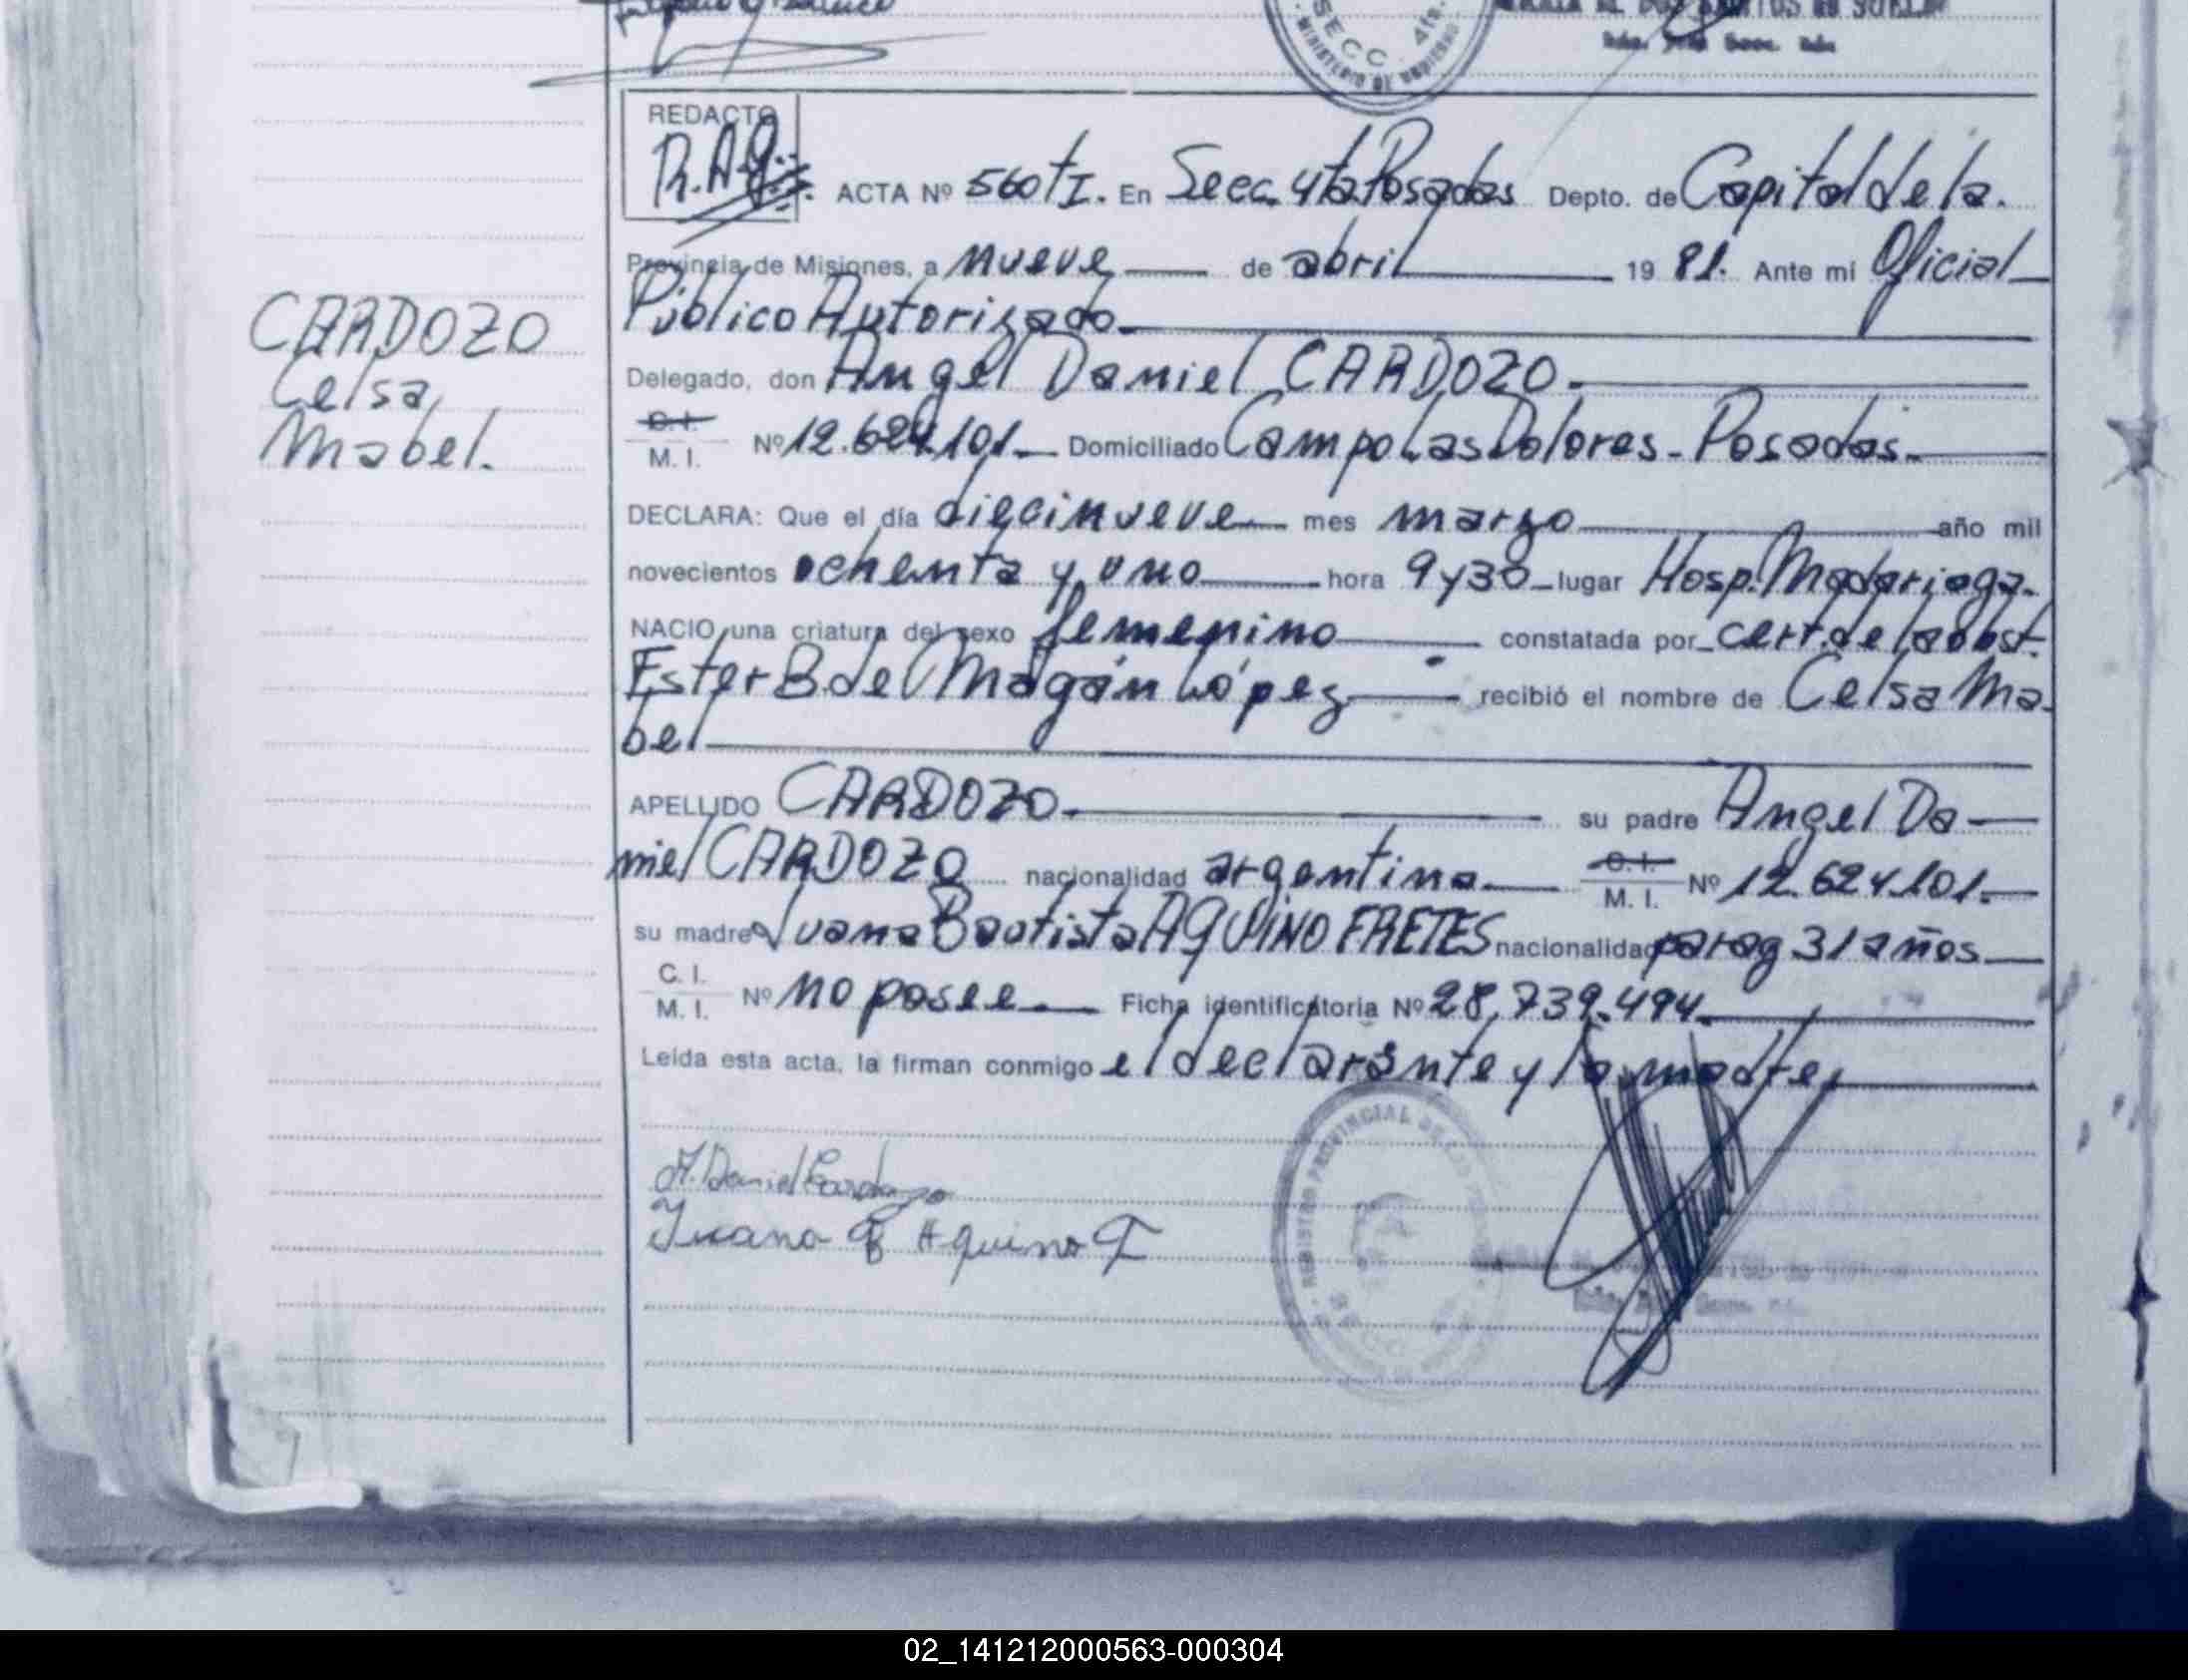 SECC. 4ta.
REDACTO
R.A.
ACTA Nº 560 tI. En Secc. 4ta Posadas Depto. de Capital de la.
Provincia de Misiones, a nueve de abril 19 81. Ante mí Oficial
Público Autorizado.
Delegado, don Angel Daniel CARDOZO.
CARDOZO
Celsa
Mabel.
C. I.
M. I. Nº 12.624.101. Domiciliado Campo Las Dolores - Posadas.
DECLARA: Que el día diecinueve mes marzo año mil
novecientos ochenta y uno hora 9 y 30 lugar Hosp. Madariaga.
NACIO una criatura del sexo femenino constatada por cert. de la obst.
Ester B. de Magán López recibió el nombre de Celsa Ma
bel
APELLIDO CARDOZO. su padre Angel Da
niel CARDOZO nacionalidad argentina C. I. M. I. Nº 12.624.101.
su madre Juana Bautista AQUINO FRETES nacionalidad parag 31 años
C. I.
M. I. Nº no posee. Ficha identificatoria Nº 28.739.494.
Leída esta acta, la firman conmigo el declarante y la madre,
A. Daniel Cardozo
Juana B Aquino F
REGISTRO PROVINCIAL DE LAS
SECC
02_141212000563-000304